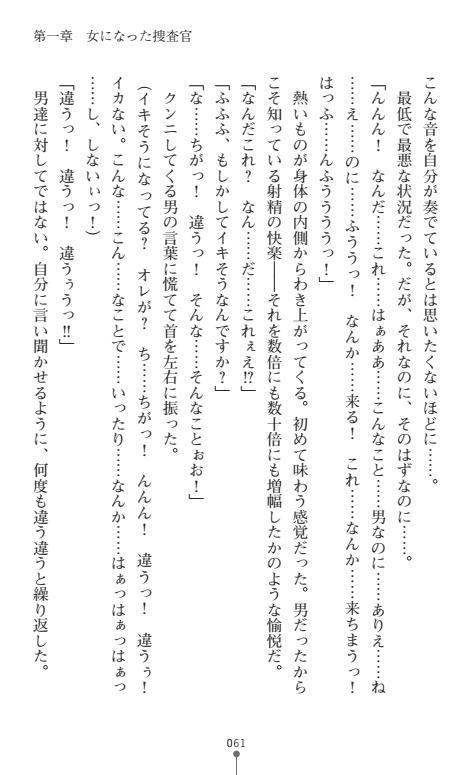 第一章　女になった捜査官
こんな音を自分が奏でているとは思いたくないほどに……。
最低で最悪な状況だった。だが、それなのに、そのはずなのに……。
「んんん！　なんだ……これ……はぁああ……こんなこと……男なのに……ありえ……ね
……え……のに……ふううっ！　なんか……来る！　これ……なんか……来ちまうっ！
はっふ……んふうううっ！」
熱いものが身体の内側からわき上がってくる。初めて味わう感覚だった。男だったから
こそ知っている射精の快楽――それを数倍にも数十倍にも増幅したかのような愉悦だ。
「なんだこれ？　なん……だ……これぇえ!?」
「ふふふ、もしかしてイキそうなんですか？」
「な……ちがっ！　違うっ！　そんな……そんなことぉお！」
クンニしてくる男の言葉に慌てて首を左右に振った。
（イキそうになってる？　オレが？　ち……ちがっ！　んんん！　違うっ！　違うぅ！
イカない。こんな……こん……なことで……いったり……なんか……はぁっはぁっはぁっ
……し、しないぃっ！）
「違うっ！　違うっ！　違うぅうっ!!」
男達に対してではない。自分に言い聞かせるように、何度も違う違うと繰り返した。
061